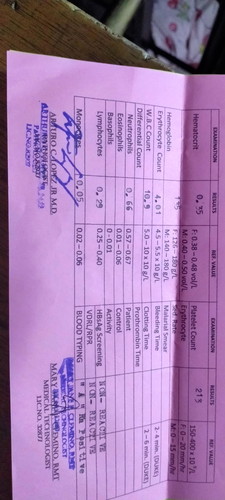 EXAMINATION RESULTS REF. VALUE EXAMINATION RESULTS REF. VALUE
Hematocrit 0.35 F: 0.38 - 0.48 vol/L Platelet Count 213 150-400 x 10⁹/L
M: 0.40 - 0.50 vol/L Erythrocyte F: 0 - 20 mm/hr
Hemoglobin F: 120 - 160 g/L Sed. Rate M: 0 - 15 mm/hr
M: 140 - 180 g/L Malarial Smear
Erythrocyte Count 4.01 4.5 - 5.5 x 10 g/L Bleeding Time 2-4 min. (DUKE)
W.B.C Count 10.9 5.0 - 10 x 10 g/L Clotting Time 2-6 min. (DUKE)
Differential Count Prothrombin Time
Neutrophils 0.66 0.57 - 0.67 Patient
Eosinophils 0.01 - 0.06 Control
Basophils 0 - 0.01 Activity
Lymphocytes 0.29 0.25 - 0.40 HBsAg Screening NON- REACTIVE
VDRL/RPR NON- REACTIVE
Monocytes 0.05 0.02 - 0.06 BLOOD TYPING Positive
M.D.
MEDICAL TECHNOLOGIST